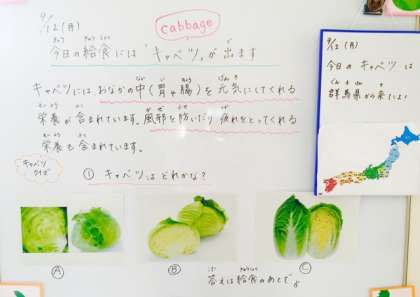 9/12(月)
cabbage
今日の給食には「キャベツ」が出ます
キャベツにはおなかの中(胃や腸)を元気にしてくれる
栄養が含まれています。風邪を防いだり疲れをとってくれる
栄養も含まれています。
キャベツクイズ
① キャベツはどれかな?
A
B
C
答えは給食のあとでよ
9/12(月)
今日のキャベツは
群馬県から来たよ!